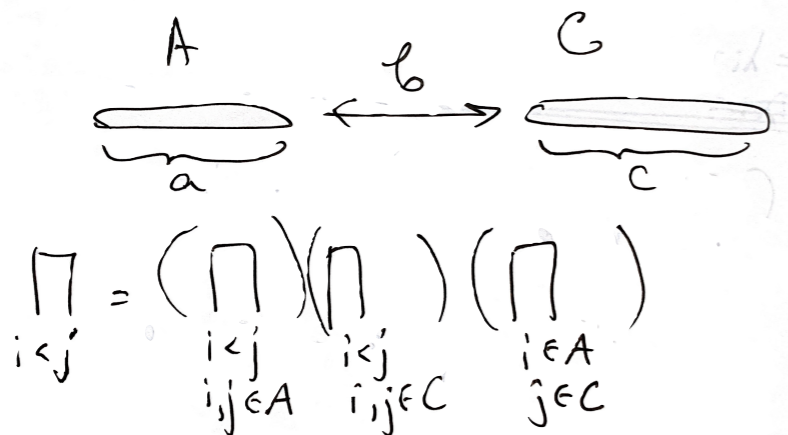 A b C
a c
∏ = ( ∏ ) ( ∏ ) ( ∏ )
i < j i < j i < j i ∈ A
i, j ∈ A i, j ∈ C j ∈ C